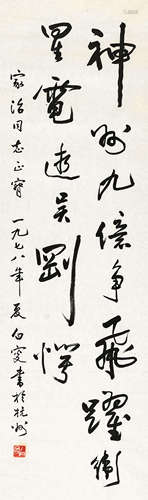 神州九億争飛躍衛
星電逝吳剛愕
家治同志正寶 一九七八年夏 白雯書於杭州